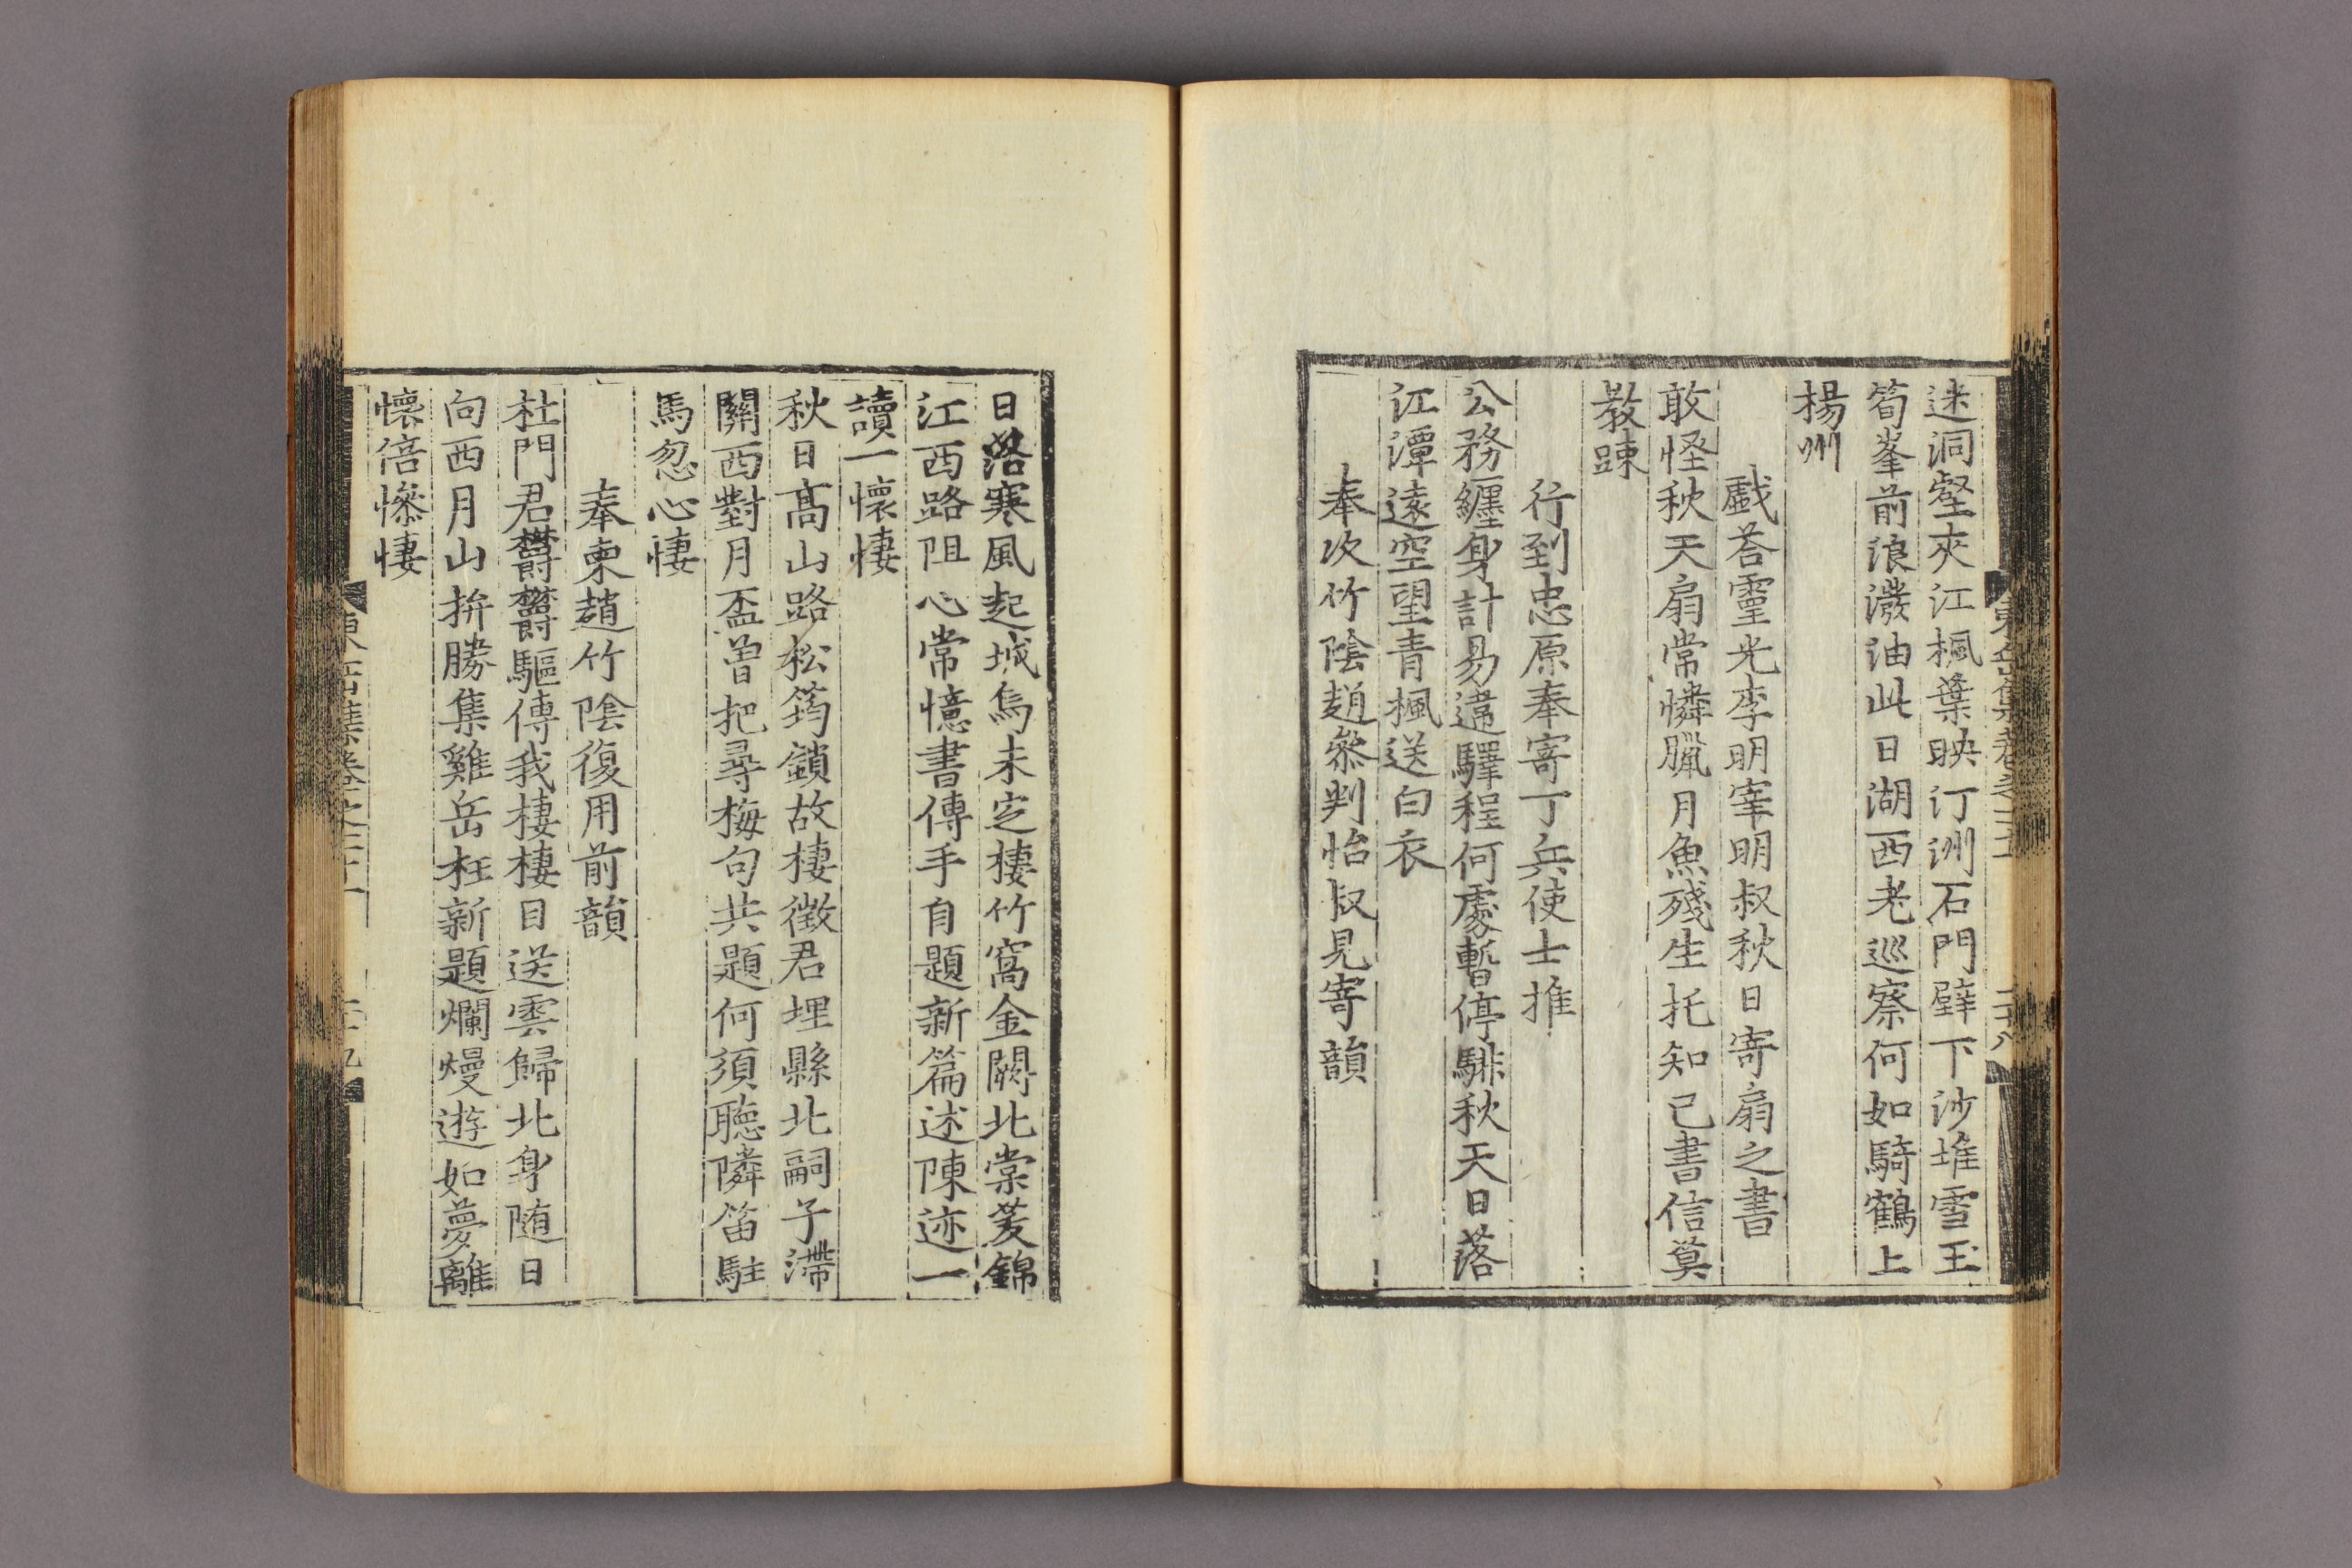 迷洞壑夾江楓葉映汀洲石門壁下沙堆雪玉
筍峯前浪潑油此日湖西老巡察何如騎鶴上
楊州
戱荅靈光李明宰明叔秋日寄扇之書
敢怪秋天扇常憐臘月魚殘生托知己書信莫
敎踈
行到忠原奉寄丁兵使士推
公務纏身計易違驛程何處暫停騑秋天日落
江潭遠空望青楓送白衣
奉次竹陰趙叅判怡叔見寄韻
東岳集卷之二十一
二十八
日落寒風起城烏未定棲竹窩金闕北棠茇錦
江西路阻心常憶書傳手自題新篇述陳迹一
讀一懷悽
秋日髙山路松筠鎖故棲徵君埋縣北嗣子滯
關西對月盃曽把尋梅句共題何須聴隣笛駐
馬忽心悽
奉柬趙竹陰復用前韻
杜門君欝欝驅傳我棲棲目送雲歸北身随日
向西月山拚勝集雞岳枉新題爛熳遊如夢離
懷倍慘悽
東岳集卷之二十一
二十九